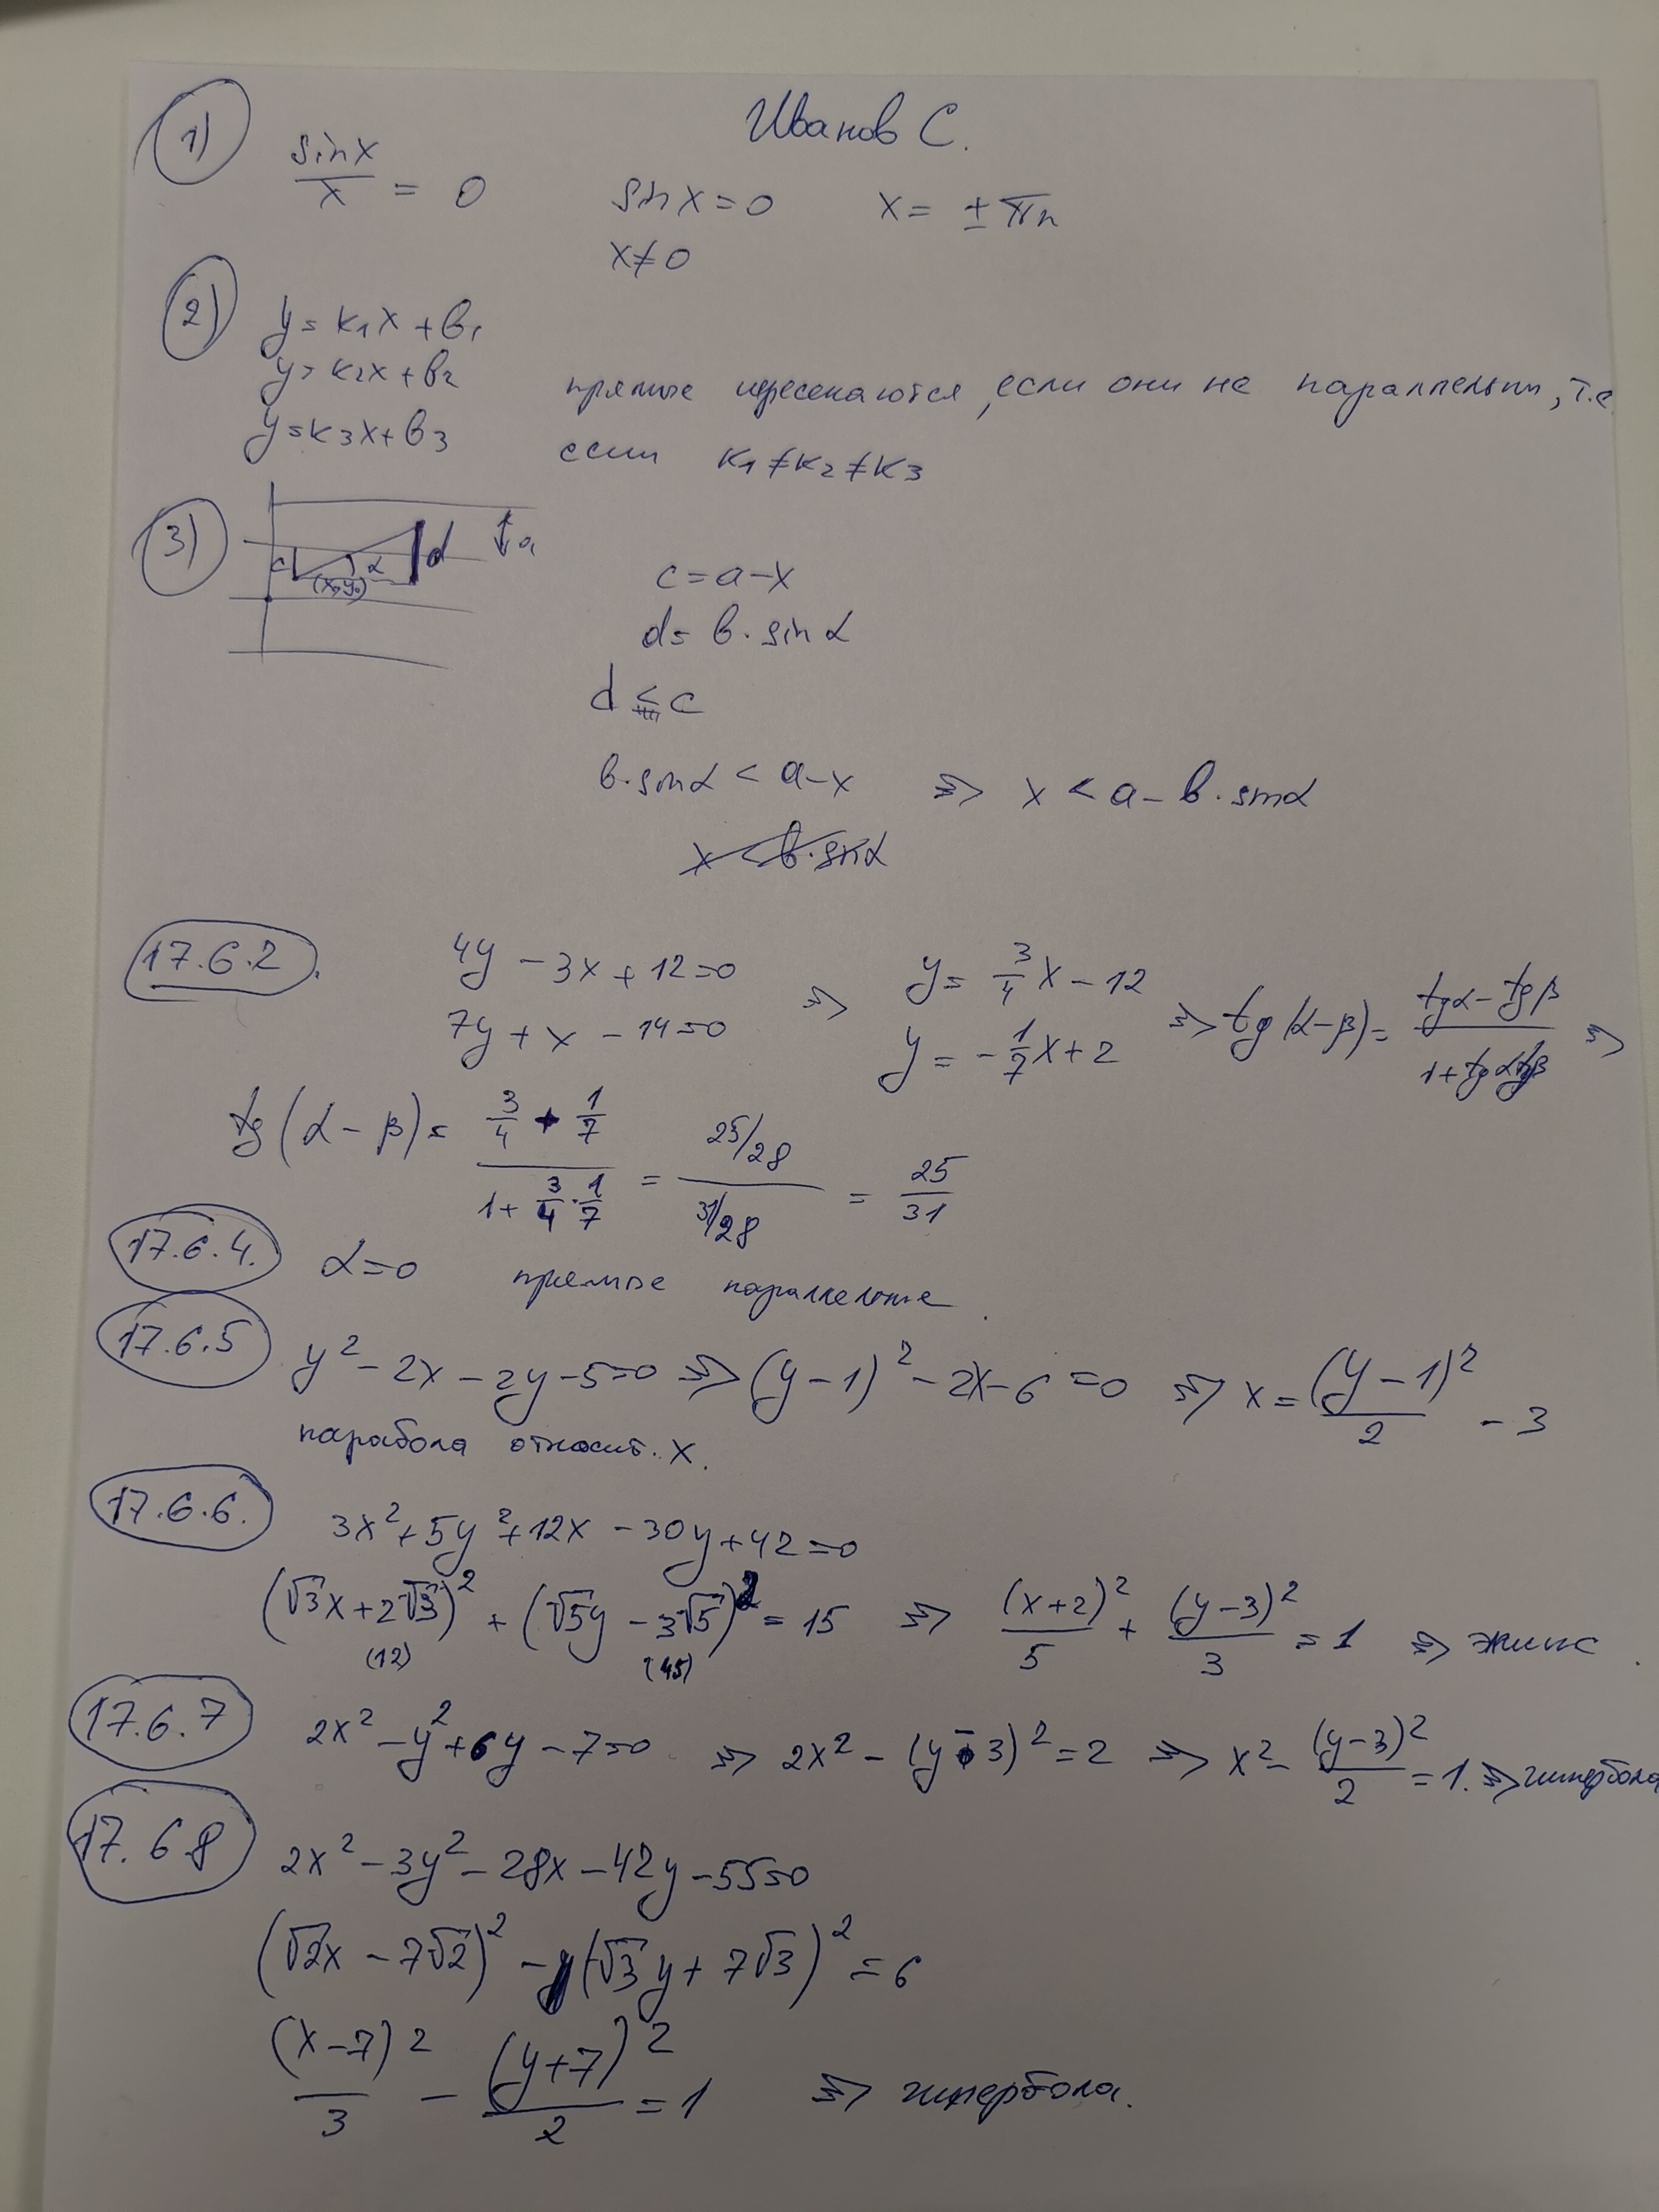 Иванов С.
1) sinx/x = 0 sinx=0 x= ±πn
x≠0
2) y= k₁x+b₁
y= k₂x+b₂
прямые пересекаются, если они не параллельны, т.е.
y=k₃x+b₃
если k₁≠k₂≠k₃
3) c (x₀y₀) α d a
c=a-x
d= b·sinα
d ≤ c
b·sinα < a-x => x < a-b·sinα
x < b·sinα
17.6.2. 4y-3x+12=0 => y= 3/4 x-12 => tg(α-β)= (tgα-tgβ)/(1+tgαtgβ) =>
7y+x-14=0 y= -1/7 x+2
tg(α-β)= (3/4 + 1/7)/(1+ 3/4·1/7) = (25/28)/(31/28) = 25/31
17.6.4. α=0 прямые параллельные.
17.6.5 y²-2x-2y-5=0 => (y-1)²-2x-6=0 => x= (y-1)²/2 - 3
парабола относит. x.
17.6.6. 3x²+5y²+12x-30y+42=0
(√3x+2√3)² + (√5y-3√5)² = 15 => (x+2)²/5 + (y-3)²/3 = 1 => эллипс.
(12) (45)
17.6.7 2x²-y²+6y-7=0 => 2x²-(y-3)²=2 => x²- (y-3)²/2 =1. => гипербола
17.6.8 2x²-3y²-28x-42y-55=0
(√2x-7√2)² - (√3y+7√3)² = 6
(x-7)²/3 - (y+7)²/2 = 1 => гипербола.